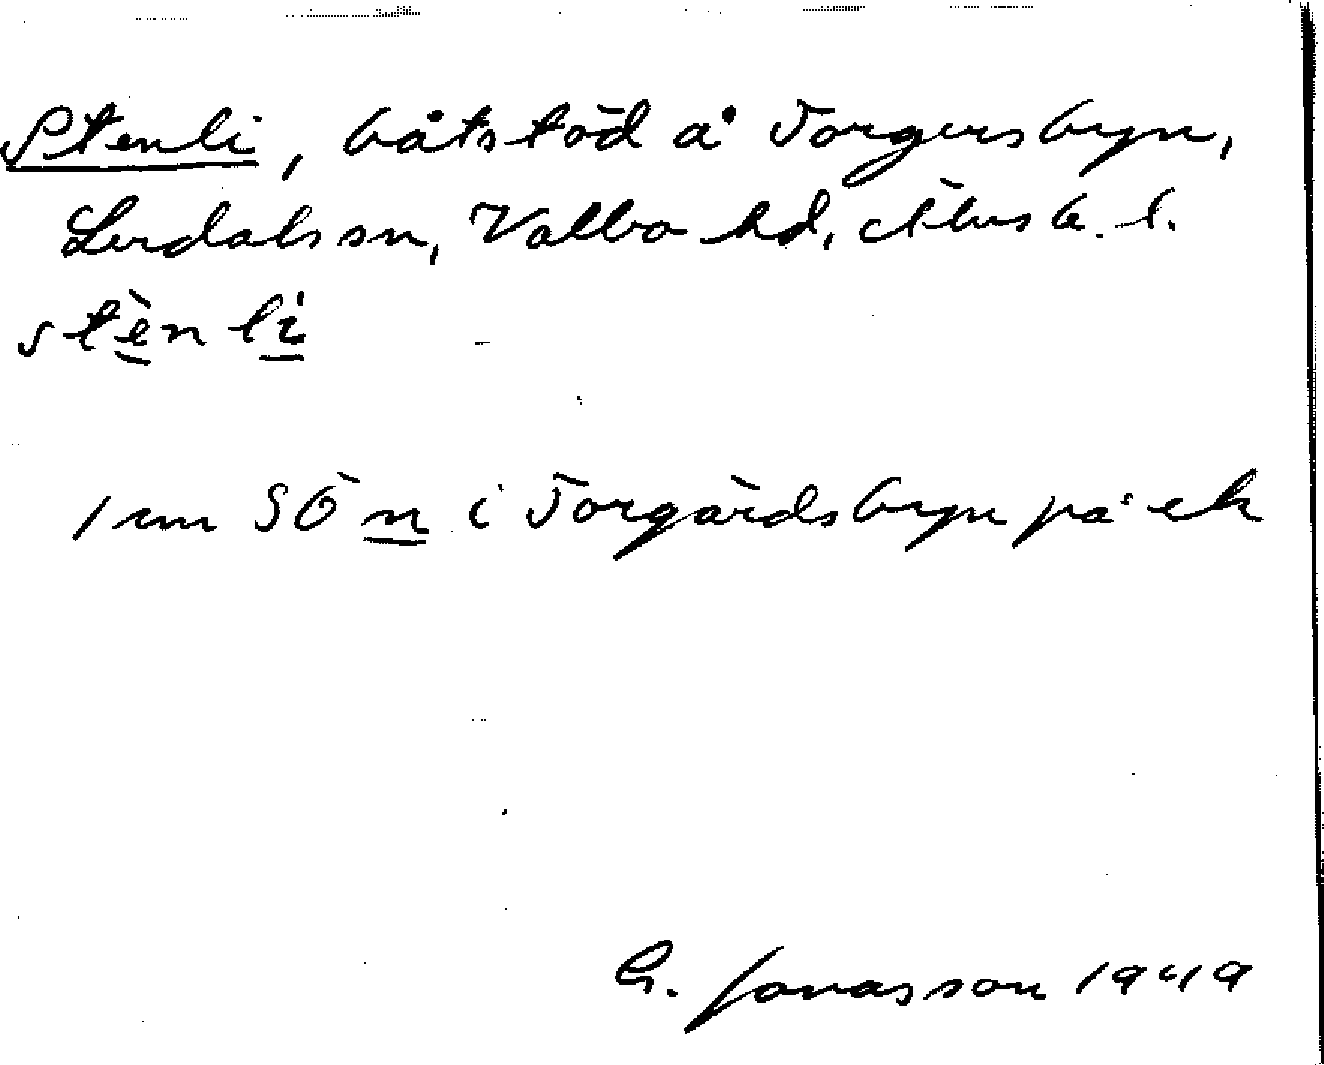 Stenli, båtstöd å Torgersbyn,
Lerdals sn, Valbo hd, Älvsb. l.
stènli
1 cm SÖ n i Torgårdsbyn på ek
G. Jonasson 1949